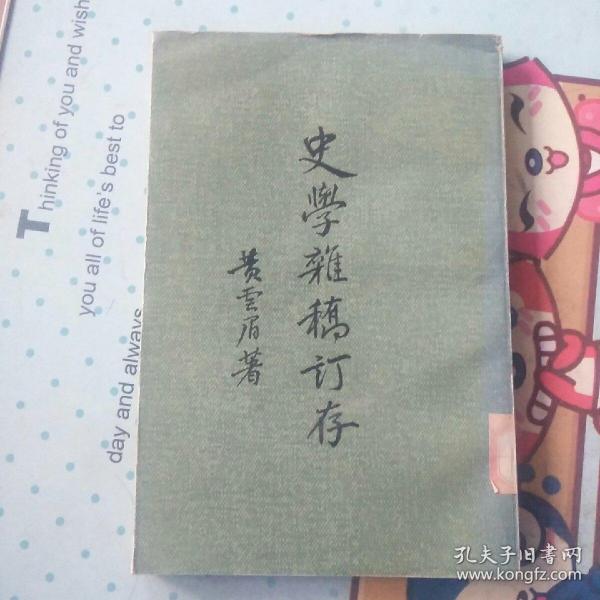 史學雜稿訂存
黄雲眉著
Thinking of you and wish
you all of life's best to
day and always
孔夫子旧書网
www.kongfz.com